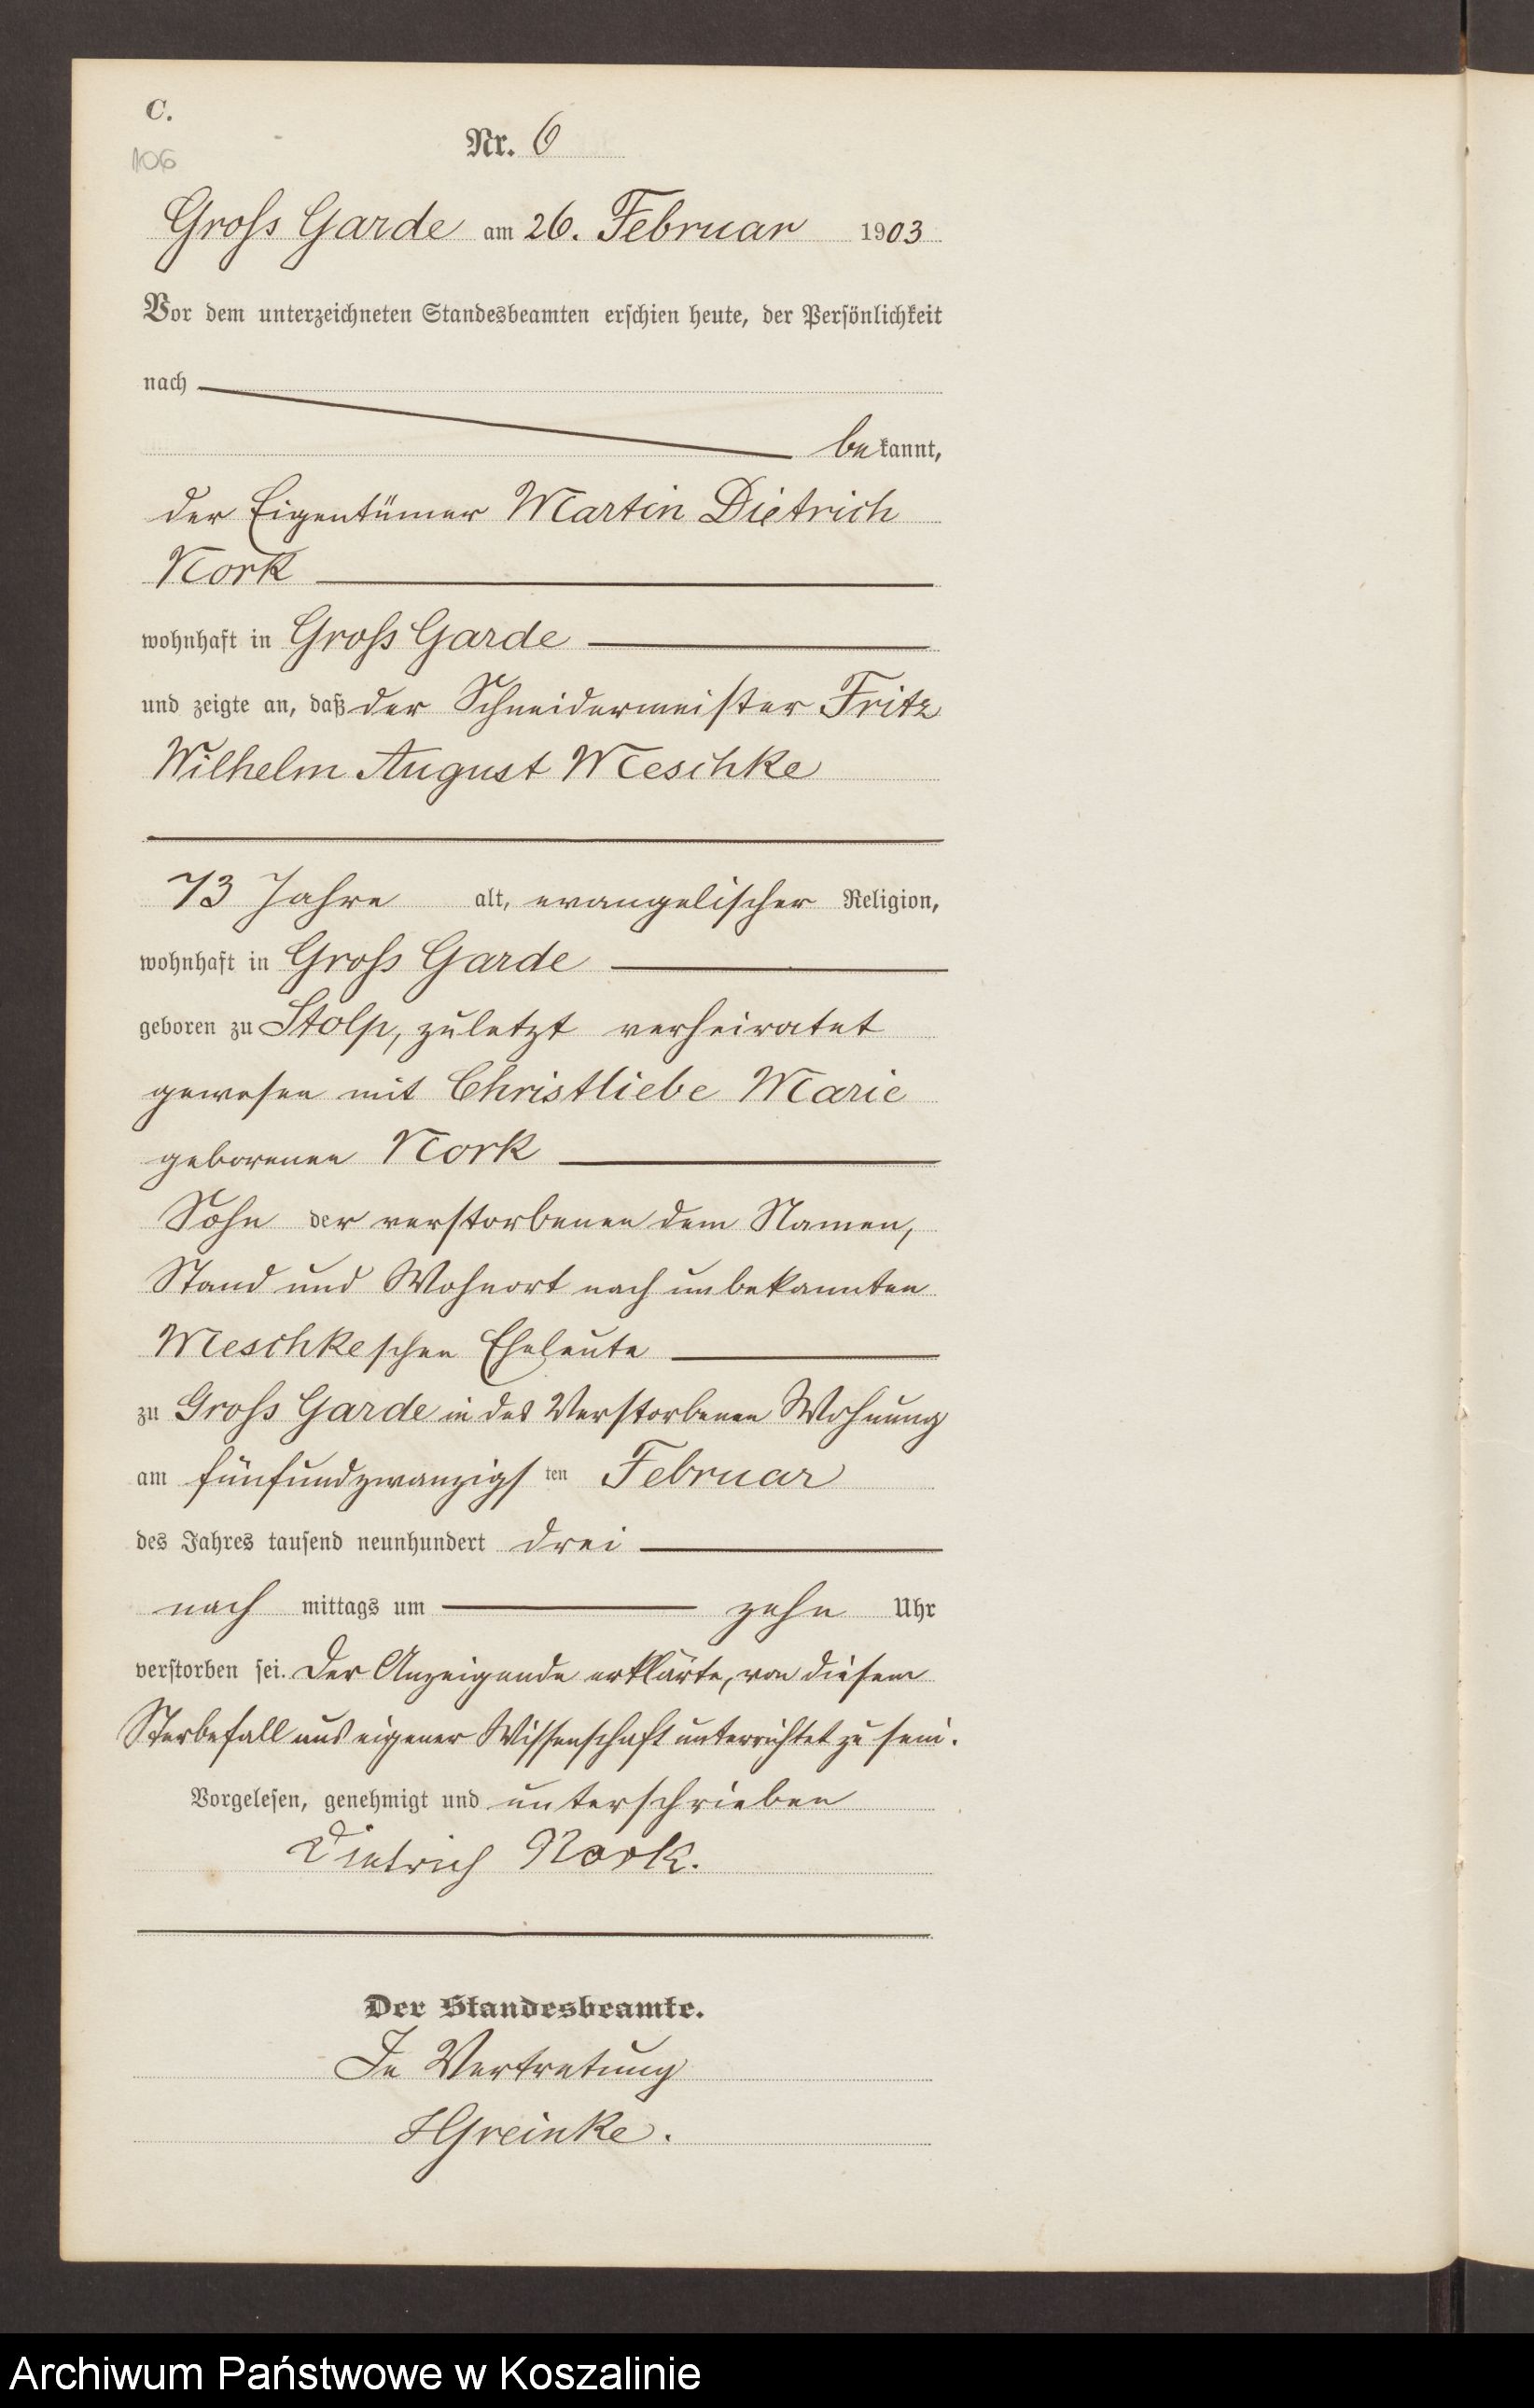 C.
106
Nr. 6
Gross Garde am 26. Februar 1903
Vor dem unterzeichneten Standesbeamten erschien heute, der Persönlichkeit
nach
bekannt,
der Eigentümer Martin Dietrich
Nork
wohnhaft in Gross Garde
und zeigte an, daß der Schneidermeister Fritz
Wilhelm August Meschke
73 Jahre alt, evangelischer Religion,
wohnhaft in Gross Garde
geboren zu Stolp, zuletzt verheiratet
gewesen mit Christliebe Marie
geborenen Nork
Sohn der verstorbenen dem Namen,
Stand und Wohnort nach unbekannten
Meschkeschen Eheleute
zu Gross Garde in des Verstorbenen Wohnung
am fünfundzwanzigsten Februar
des Jahres tausend neunhundert drei
nach mittags um zehn Uhr
verstorben sei. Der Anzeigende erklärte, von diesem
Sterbefall aus eigener Wissenschaft unterrichtet zu sein.
Vorgelesen, genehmigt und unterschrieben
Dietrich Nork.
Der Standesbeamte.
In Vertretung
HGreinke.
Archiwum Państwowe w Koszalinie